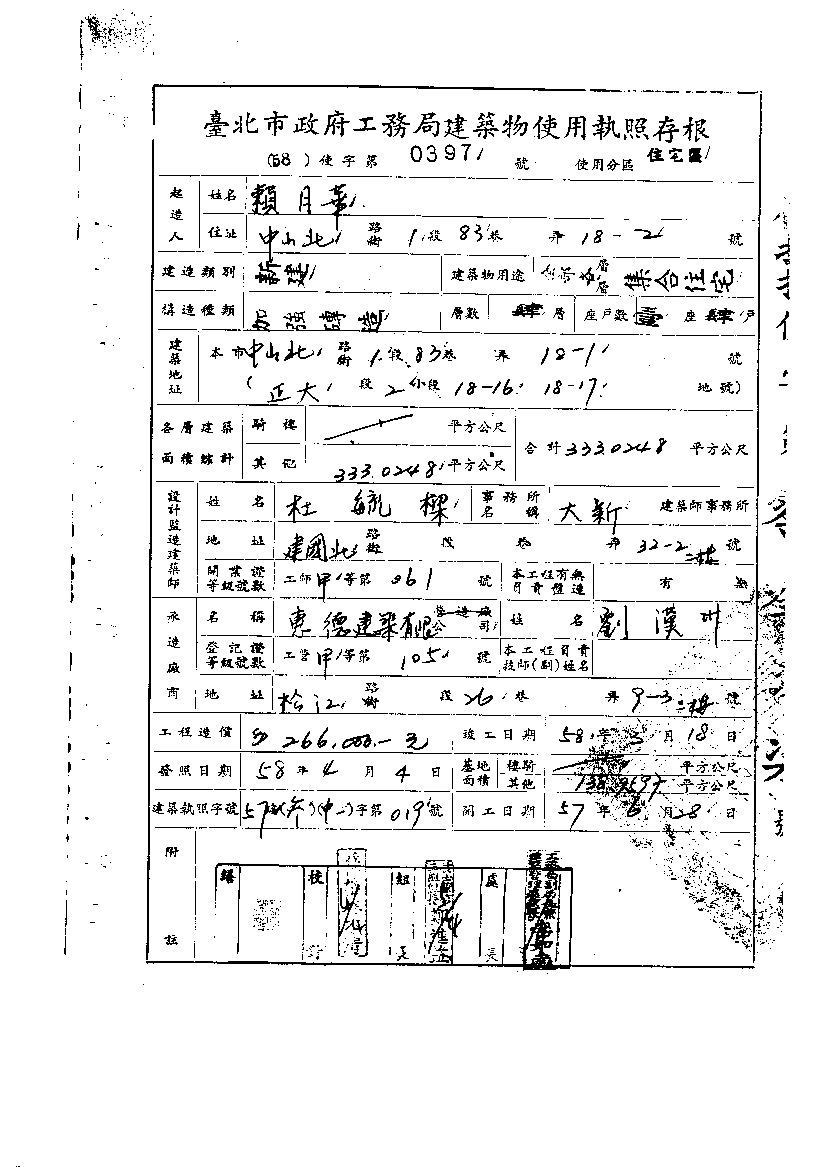 臺北市政府工務局建築物使用執照存根
(58)使字第 0397 號 使用分區 住宅區
起造人 姓名 賴月華
住址 中山北 路街 1段 83巷 弄 18-2 號
建造類別 新建 建築物用途 層層 集合住宅
構造種類 加強磚造 層數 肆層 座戶數 壹座肆戶
建築地址 本市中山北 路街 1段 83巷 弄 18-1 號
(正大 段 2小段 18-16 18-17 地號)
各層建築面積總計 騎樓 平方公尺
其他 333.0248 平方公尺 合計 333.0248 平方公尺
設計監造建築師 姓名 杜毓樑 事務所名稱 大新 建築師事務所
地址 建國北 路街 段 巷 弄 32-2 二樓 號
開業證等級號數 工師甲等第 061 號 本工程有無負責監造 有 無
承造廠商 名稱 惠德建築有限 營造廠公司 姓名 劉漢
登記證等級號數 工營甲等第 105 號 本工程負責技師(副)姓名
地址 松江 路街 段 26巷 弄 9-3 二樓 號
工程造價 266,000.-元 竣工日期 58年3月18日
發照日期 58年4月4日 基地面積 騎樓 平方公尺
其他 平方公尺
建築執照字號 57 字第 019 號 開工日期 57年6月28日
附註
繕 校對 組長 處長